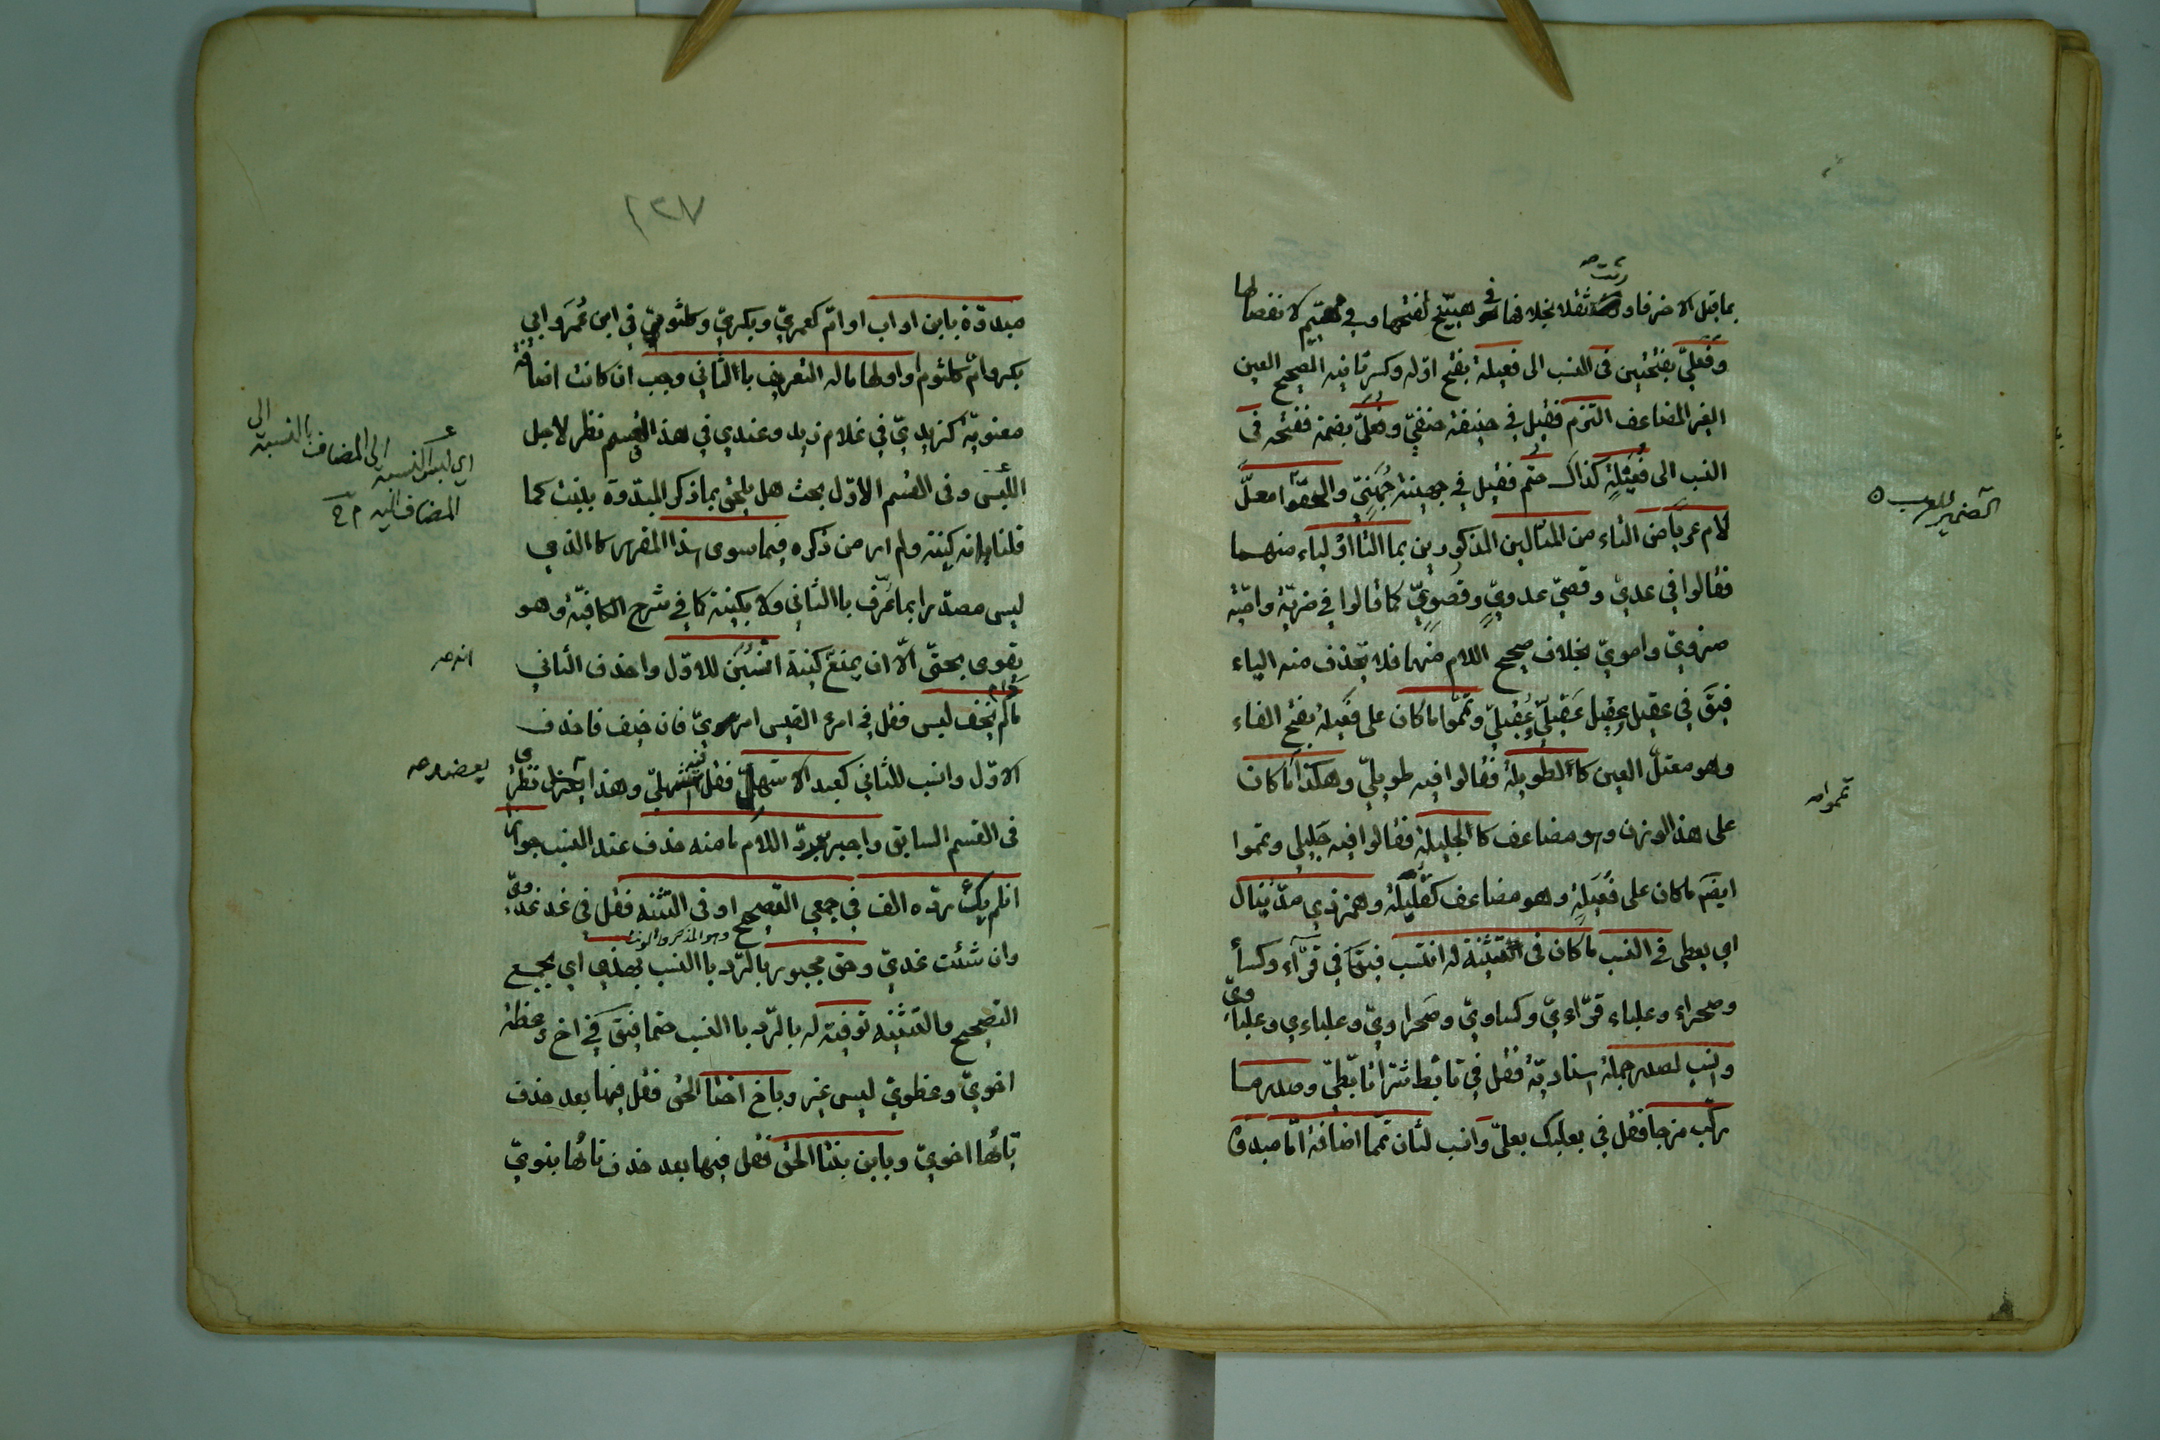 بما قبل الآخر فاورثت ثقلا بخلافها في هبيّخ لفتحها وفي مهيّيم لانفصالها
وفعليّ بفتحتين في النسب الى فعيلة بفتح اوّله وكسر ثانيه الصحيح العين
الغير المضاعف التزم فقيل في حنيفة حنفيّ وفعليّ بضمة ففتحه في
النسب الى فعيلة كذاك حتم فقيل في جهينة جهنيّ والحقوا معلّ
لام عريا من التاء من المثالين المذكورين بما التا اوليا منهما
فقالوا في عديّ وقصيّ عدويّ وقصويّ كما قالوا في ضريّة واميّة
ضرويّ وامويّ بخلاف صحيح اللام منهما فلا تحذف منه الياء
فيقَ في عقيل وعقيل عقيليّ وعقيليّ وتمّموا ما كان على فعيلة بفتح الفاء
وهو معتلّ العين كالطويلة فقالوا فيه طويليّ وهكذا ما كان
على هذا الوزن وهو مضاعف كالجليلة فقالوا فيه جليلي وتمموا
ايضَم ما كان على فعيلة وهو مضاعف كقليلة وهمز ذي مدّ ينال
اي يعطى في النسب ما كان في التثنية له انتسب فيقَ في قرّاء وكساء
وصحراء وعلباء قرّاءيّ وكساويّ وصحراويّ وعلباءي وعلباويّ
وانسب لصدر جملة اسناديّة فقل في تابّط شرّا تابّطيّ وصدر ما
ركّب مزجا فقل في بعلبك بعليّ وانسب لثان تمما اضافة امّا مبدوّة
الضمير للعرب
تمموا صه
١٢٨٧
مبدوّة بابن او اب او امّ كعمريّ وبكريّ وكلثوميّ في ابن عمر وابي
بكر وامّ كلثوم او اولها ما له التعريف بالثاني وجب ان كانت اضافة
معنويّة كزيديّ في غلام زيد وعندي في هذا القسم نظر لاجل
اللبس وفي القسم الاوّل بحث هل يلحق بما ذكر المبدوّة ببنت كما
قلنا انه كنية ولم ار من ذكره فيما سوى هذا المقرر كالذي
ليس مصدّرا بما عرّف بالثاني ولا بكنية كما في شرح الكافية وهو
يقوى بحثى الّا ان يمنع كنية انسبن للاوّل واحذف الثاني
ما لم يخف لبس فقل في امرء القيس امرءيّ فان خيف فاحذف
الاوّل وانسب للثاني كعبد الاشهل فقل فيه اشهليّ وهذا نظري
في القسم السابق واجبر بردّ اللام ما منه حذف عند النسب جوازا
ان لم يك ردّه الف في جمعي التصحيح او في التثنيه فقل في غد غدويّ
وهو المذكر والمونث
وان شئت غديّ وحق مجبور بالردّ بالنسب بهذي اي بجمع
التصحيح والتثنيه توفيه له بالردّ بالنسب حتما فيقَ في اخ وعظة
اخويّ وعظويّ ليس غير وباخ اختا الحق فقل فيها بعد حذف
تائها اخويّ وبابن بنتا الحق فقل فيها بعد حذف تائها بنويّ
اي لبس النسبة الى المضاف بالنسبة الى
المضاف اليه
انه صه
يعضد صه